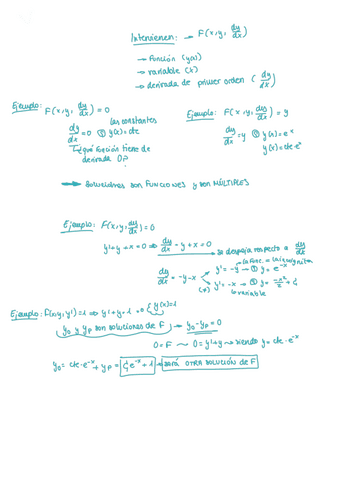 Intervienen: → F(x, y, dy/dx)
→ función (y(x))
→ variable (x)
→ derivada de primer orden (dy/dx)
Ejemplo: F(x, y, dy/dx) = 0
dy/dx = 0 → y(x) = cte
las constantes
¿qué función tiene de derivada 0?
Ejemplo: F(x, y, dy/dx) = y
dy/dx = y → y(x) = e^x
y(x) = cte·e^x
→ Soluciones son FUNCIONES y son MÚLTIPLES
Ejemplo: F(x, y, dy/dx) = 0
y' + y + x = 0 ⇒ dy/dx + y + x = 0 → se despeja respecto a dy/dx
dy/dx = -y - x
y' = -y → y = e^-x
(*) y' = -x → y = -x²/2 + C₁
la variable
Ejemplo: F(x, y, y') = 1 ⇒ y' + y - 1 = 0 { y(x) = 1
y₀ y yp son soluciones de F → y₀ - yp = 0
0 = F ~ 0 = y' + y → siendo y = cte·e^-x
y₀ = cte·e^-x + yp = C₁e^-x + 1 → SERÁ OTRA SOLUCIÓN DE F